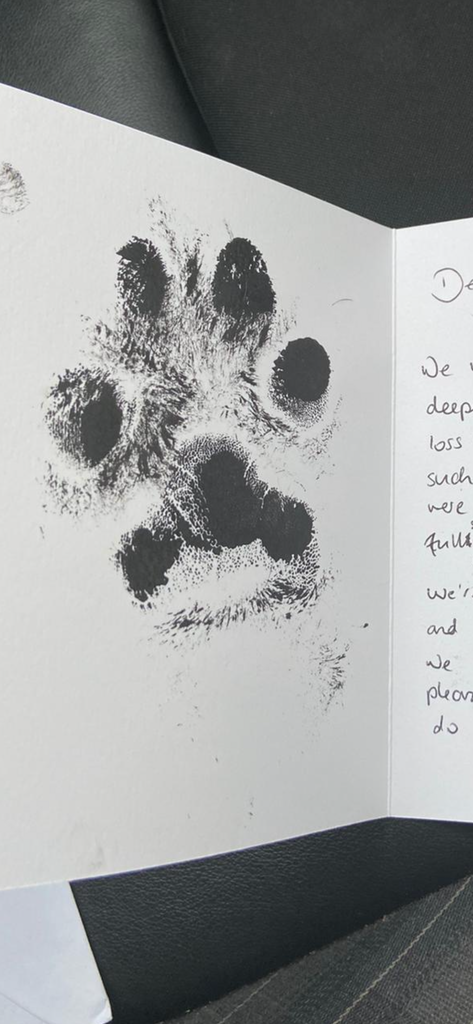 De
We w
deep
loss
such
were
full
we'r
and
we
pleas
do